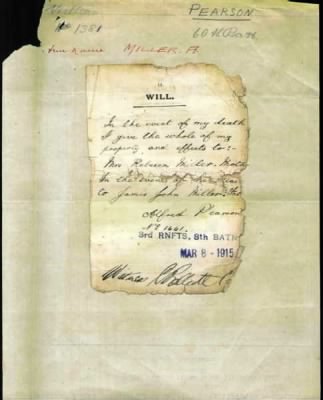 No 1381
PEARSON
True Name MILLER. A
WILL.
In the event of my death
I give the whole of my
property and effects to:-
Mrs Rebecca Miller. Mother
In the event of her
to James John Miller.
Alfred Pearson
No 1661.
3rd RNFTS, 8th BATN
MAR 8 - 1915
Witness